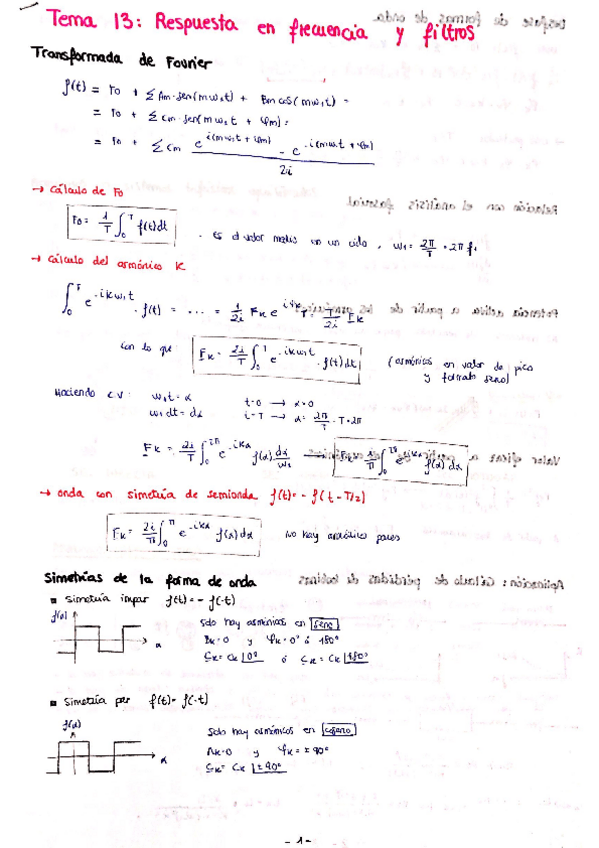 Tema 13: Respuesta en frecuencia y filtros
Transformada de Fourier
f(t) = F0 + ΣAm·sen(mω1t) + Bm cos(mω1t) =
= F0 + Σ Cm·sen(mω1t + φm) =
= F0 + Σ Cm e^{i(mω1t + φm)} - e^{-i(mω1t + φm)} / 2i
→ Cálculo de F0
F0 = 1/T ∫_0^T f(t)dt · Es el valor medio en un ciclo, ω1 = 2π/T = 2πf1
→ Cálculo del armónico K
∫_0^T e^{-ikω1t} · f(t) = ... = 1/2i Fk e^{iφk} T = T/2i Fk
con lo que Fk = 2i/T ∫_0^T e^{-ikω1t} · f(t)dt (armónicos en valor de pico
y formato seno)
Haciendo C.V: ω1t = α t=0 → α=0
ω1dt = dα t=T → α = 2π/T · T = 2π
Fk = 2i/T ∫_0^{2π} e^{-ikα} f(α) dα/ω1 → Fk = i/π ∫_0^{2π} e^{-ikα} f(α) dα
→ onda con simetría de semionda f(t) = - f(t - T/2)
Fk = 2i/π ∫_0^π e^{-ikα} f(α)dα No hay armónicos pares
Simetrías de la forma de onda
■ Simetría impar f(t) = - f(-t)
f(α)
α
Solo hay armónicos en seno
Bk=0 y φk = 0° ó 180°
Ck = Ck |0° ó Ck = Ck |180°
■ Simetría par f(t) = f(-t)
f(α)
α
Solo hay armónicos en coseno
Ak=0 y φk = ±90°
Ck = Ck |±90°
- 1 -